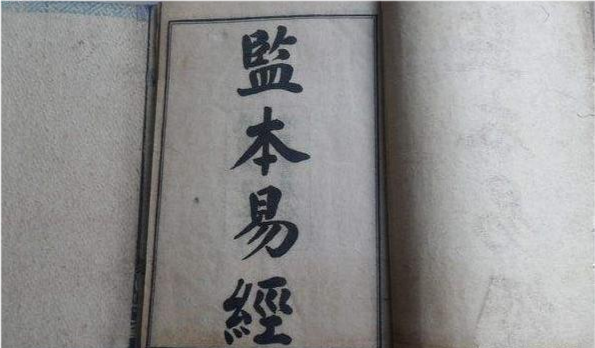 監本易經